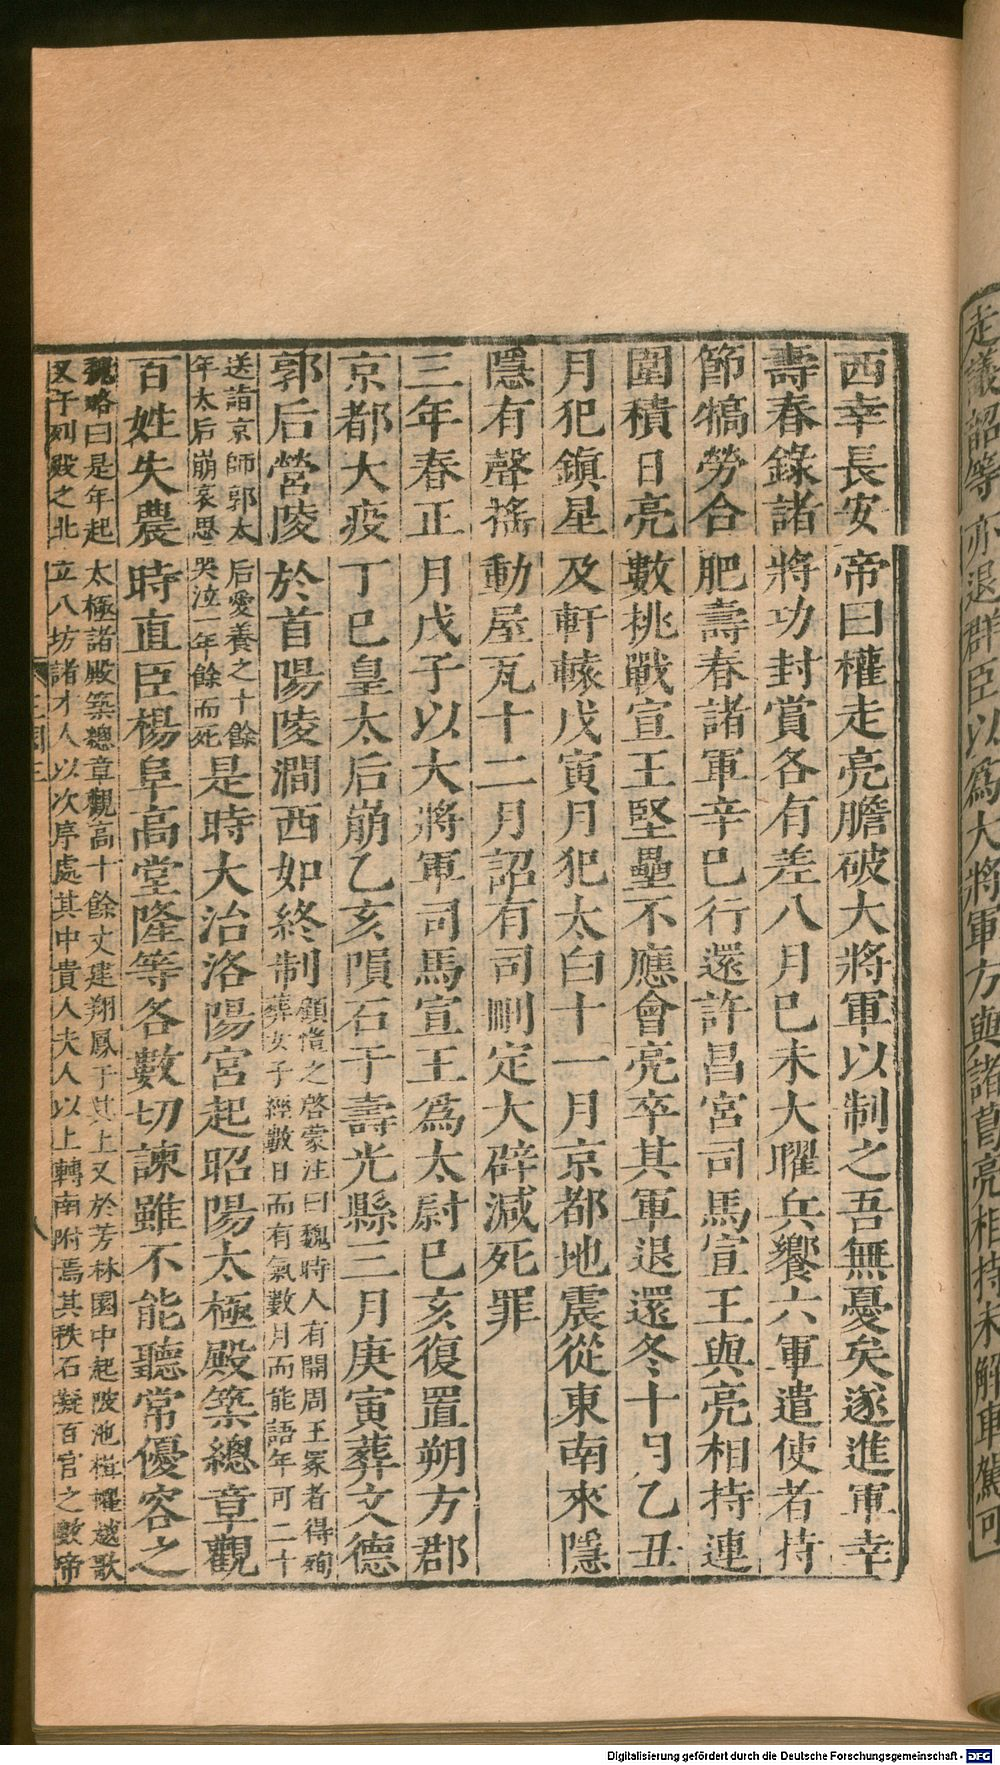 走議詔等亦退群臣以爲大將軍方與諸葛亮相持未解車駕可
西幸長安帝曰權走亮膽破大將軍以制之吾無憂矣遂進軍幸
壽春錄諸將功封賞各有差八月巳未大曜兵饗六軍遣使者持
節犒勞合肥壽春諸軍辛巳行還許昌宮司馬宣王與亮相持連
圍積日亮數挑戰宣王堅壘不應會亮卒其軍退還冬十月乙丑
月犯鎭星及軒轅戊寅月犯太白十一月京都地震從東南來隱
隱有聲搖動屋瓦十二月詔有司刪定大辟減死罪
三年春正月戊子以大將軍司馬宣王爲太尉巳亥復置朔方郡
京都大疫丁巳皇太后崩乙亥隕石于壽光縣三月庚寅葬文德
郭后營陵於首陽陵澗西如終制
顧愷之啓蒙注曰魏時人有開周王冢者得殉
葬女子經數日而有氣數月而能語年可二十
送詣京師郭太后愛養之十餘
年太后崩哀思哭泣一年餘而死
是時大治洛陽宮起昭陽太極殿築總章觀
百姓失農時直臣楊阜高堂隆等各數切諫雖不能聽常優容之
魏略曰是年起太極諸殿築總章觀高十餘丈建翔鳳于其上又於芳林園中起陂池楫櫂越歌
又于列殿之北立八坊諸才人以次序處其中貴人夫人以上轉南附焉其秩石擬百官之數帝
Digitalisierung gefördert durch die Deutsche Forschungsgemeinschaft - DFG